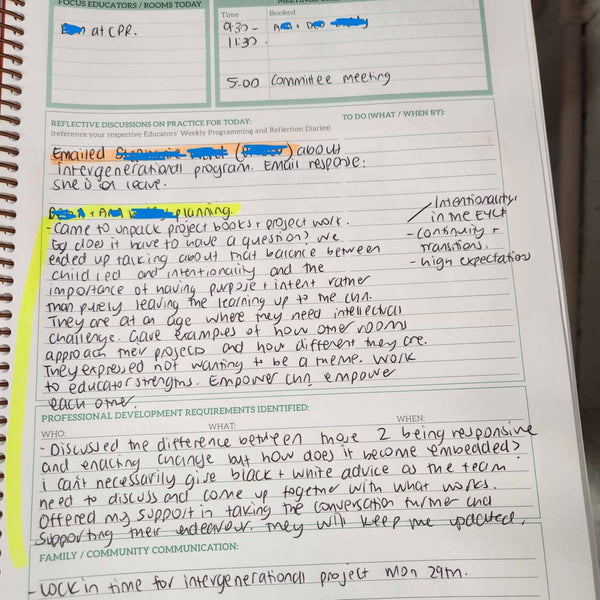 FOCUS EDUCATORS / ROOMS TODAY
at CPR.
Time Booked
9:30 - A + D
11:30
5:00 Committee meeting
REFLECTIVE DISCUSSIONS ON PRACTICE FOR TODAY:
(reference your respective Educators' Weekly Programming and Reflection Diaries)
TO DO (WHAT / WHEN BY):
Emailed about
intergenerational program. Email response:
she is on leave.
+ A planning.
- Came to unpack project books + project work.
Eg does it have to have a question? We
ended up talking about that balance between
child led and intentionality and the
importance of having purpose + intent rather
than purely leaving the learning up to the chn.
They are at an age where they need intellectual
challenge. Gave examples of how other rooms
approach their projects and how different they are.
They expressed not wanting to be a theme. Work
to educator strengths. Empower chn, empower
each other.
Intentionality
in the EYLF
- continuity +
transitions.
- high expectations
PROFESSIONAL DEVELOPMENT REQUIREMENTS IDENTIFIED:
WHO: WHAT: WHEN:
- Discussed the difference between those 2 being responsive
and enacting change but how does it become embedded?
I can't necessarily give black + white advice as the team
need to discuss and come up together with what works.
Offered my support in taking the conversation further and
supporting their endeavour. They will keep me updated.
FAMILY / COMMUNITY COMMUNICATION:
- Lock in time for intergenerational project Mon 29th.